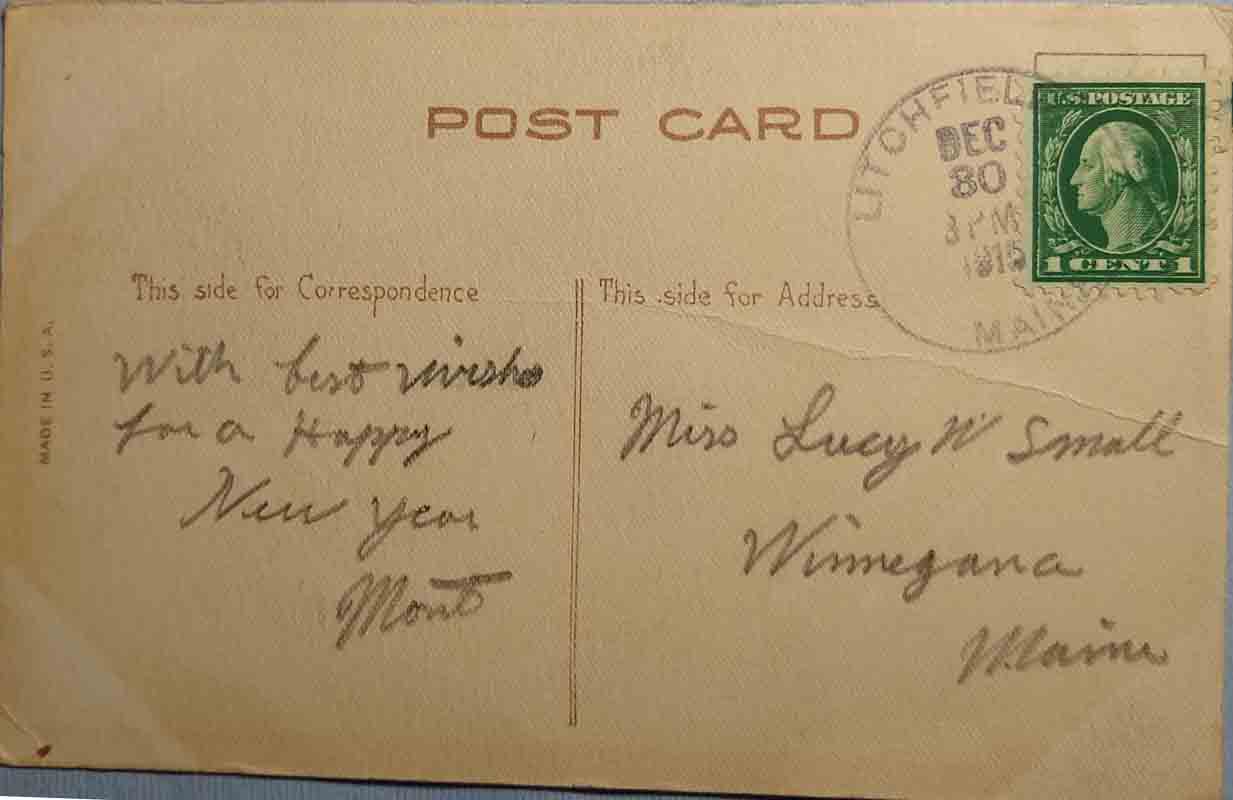 POST CARD
LITCHFIELD
DEC
30
3 PM
1915
MAINE
U.S. POSTAGE
1 CENT 1
This side for Correspondence
This side for Address
MADE IN U. S. A.
With best wishes
for a Happy
New Year
Mont
Miss Lucy W Small
Winnegana
Maine